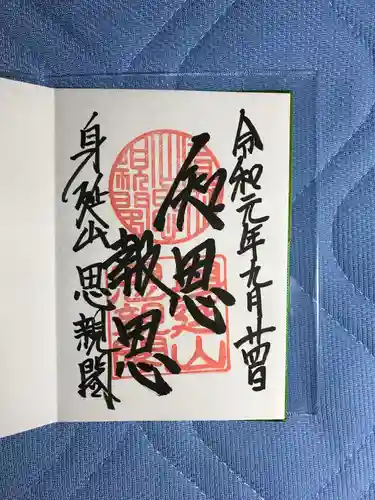 令和元年九月廿日
知恩
報恩
身延山 思親閣